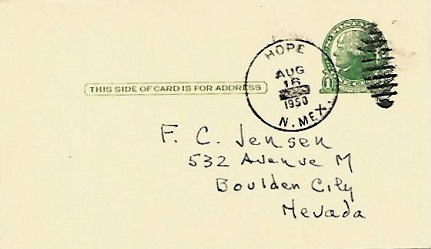 HOPE
AUG
16
1950
N. MEX.
THIS SIDE OF CARD IS FOR ADDRESS
F. C. Jensen
532 Avenue M
Boulden City
Nevada